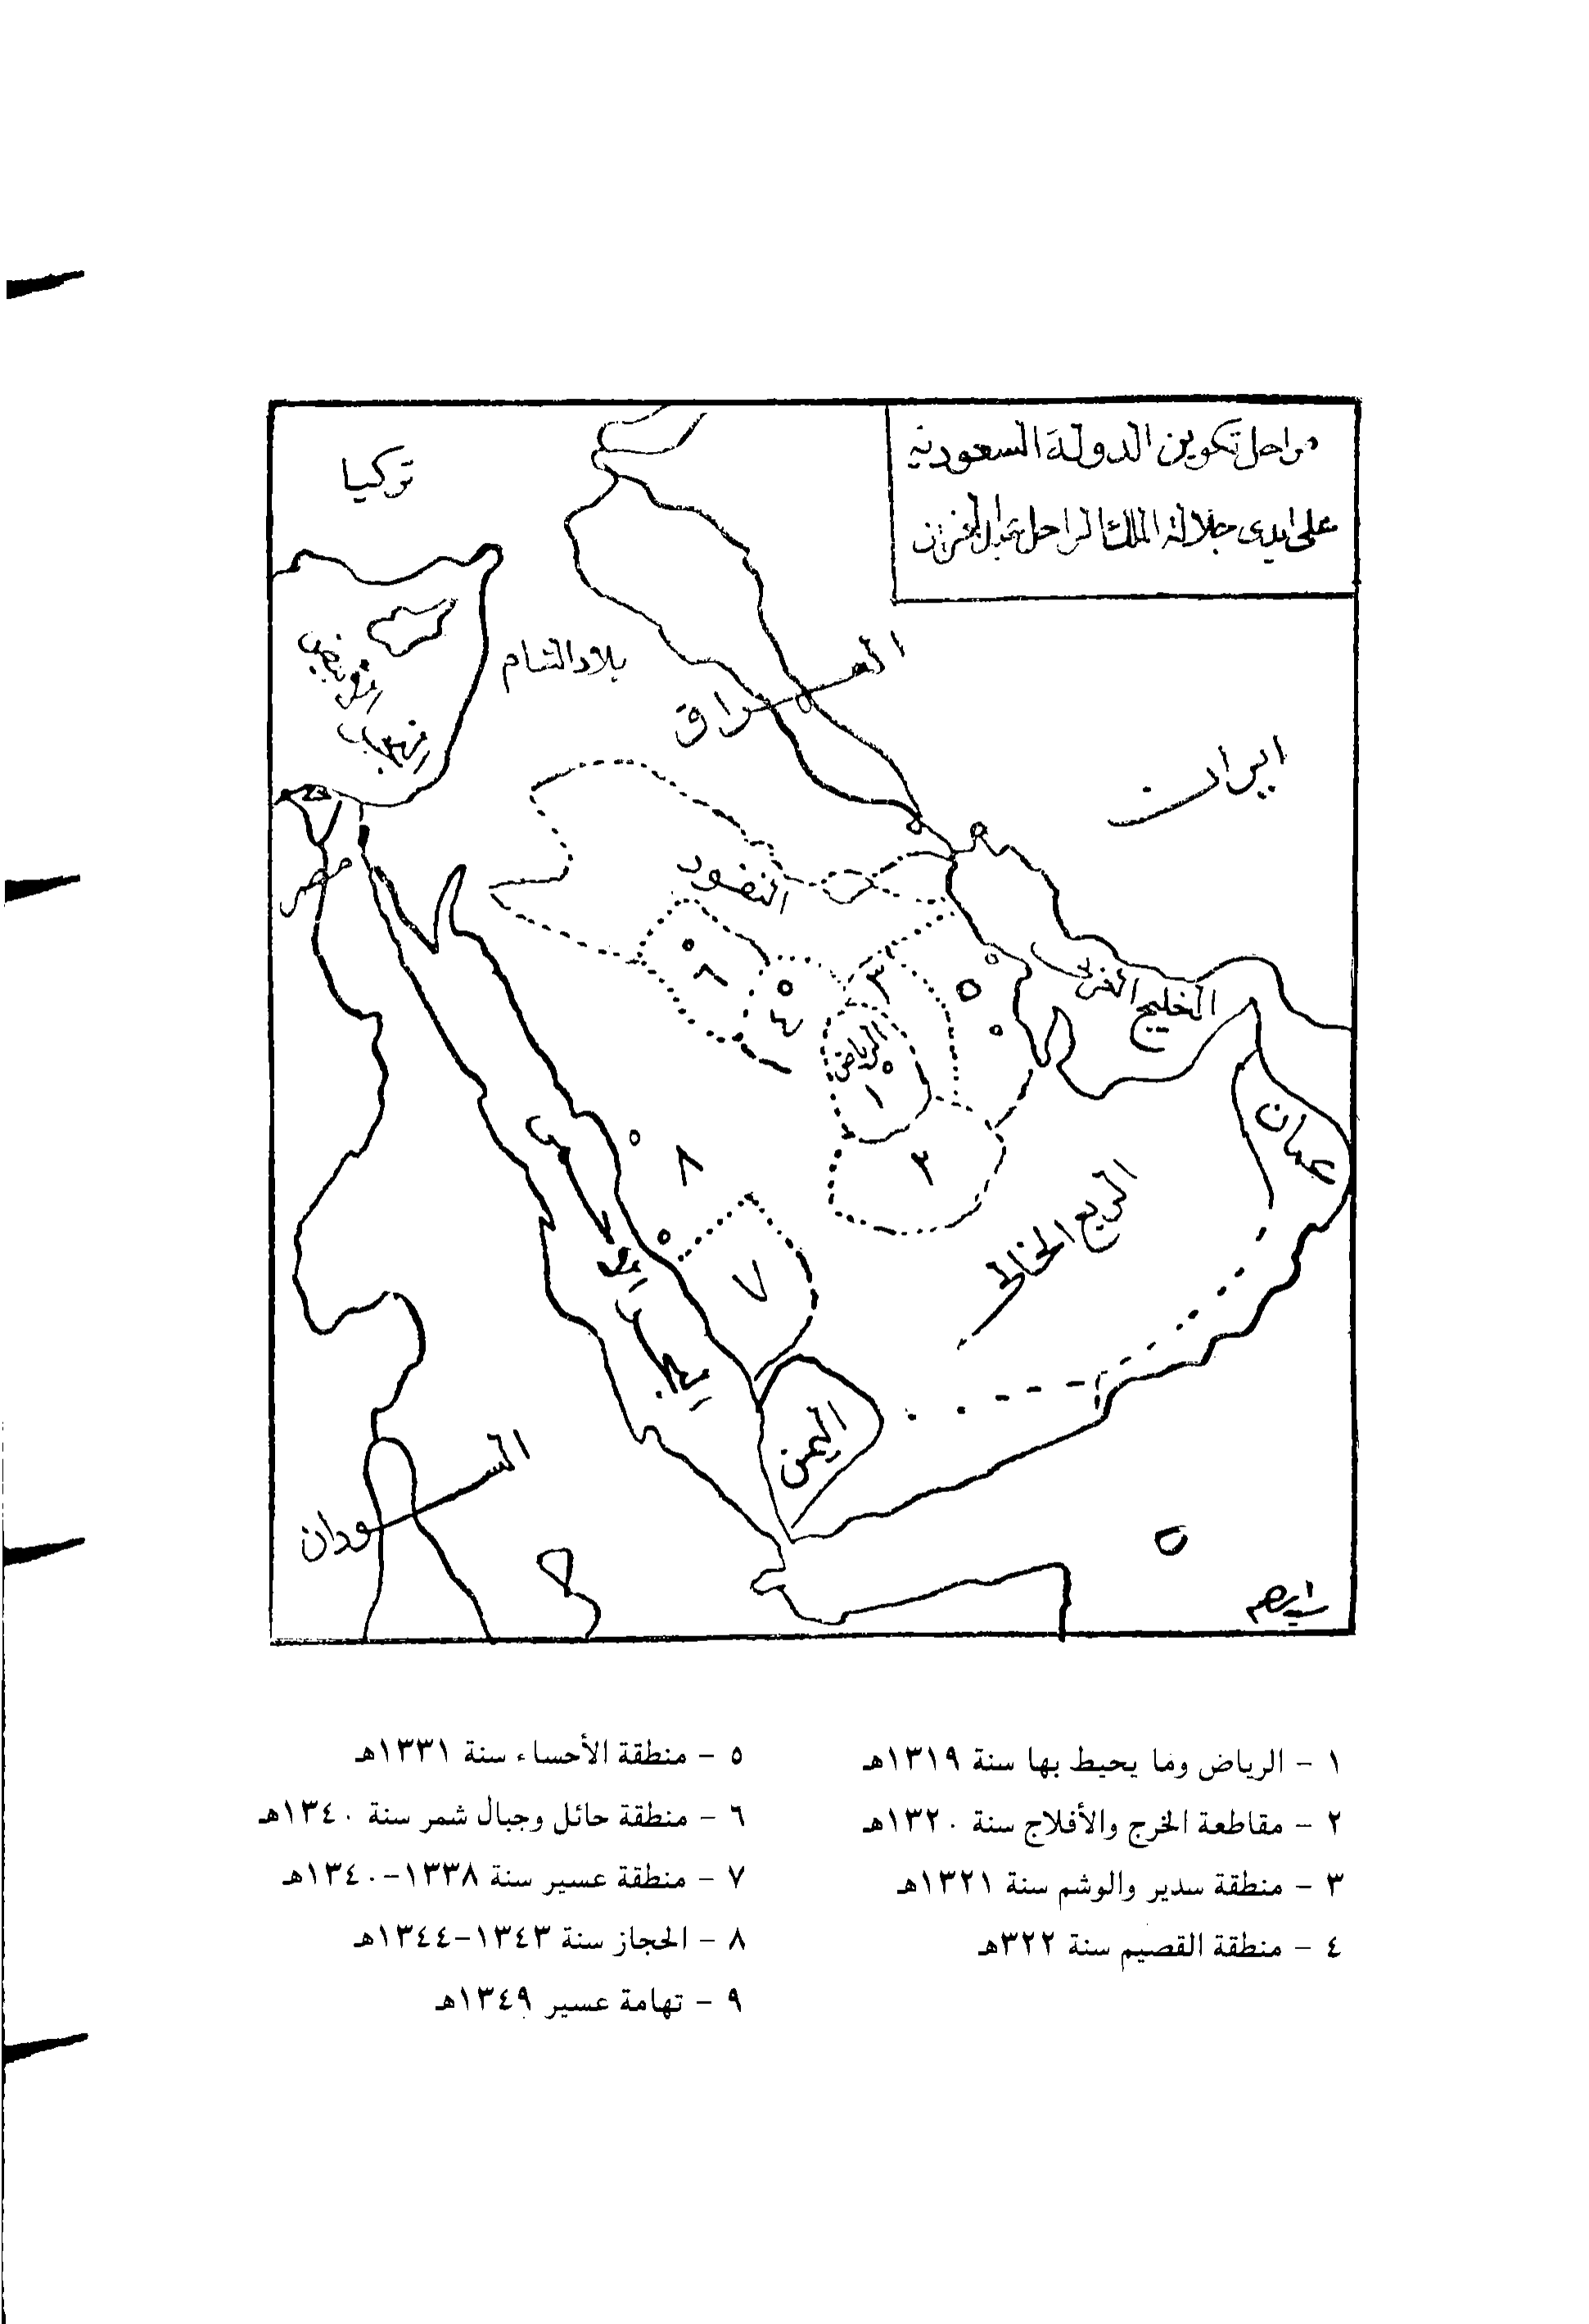 مراحل تكوين الدولة السعودية
على ايدي جلالة الملك الراحل عبدالعزيز
تركيا
بلاد الشام
العراق
ايران
البحر الأبيض
مصر
النفود
٦
٤
٣
٥
الرياض
١
الخليج العربي
٢
٨
٧
عمان
الربع الخالي
البحر الأحمر
اليمن
السودان
١ - الرياض وما يحيط بها سنة ١٣١٩هـ
٢ - مقاطعة الخرج والأفلاج سنة ١٣٢٠هـ
٣ - منطقة سدير والوشم سنة ١٣٢١هـ
٤ - منطقة القصيم سنة ٣٢٢هـ
٥ - منطقة الأحساء سنة ١٣٣١هـ
٦ - منطقة حائل وجبال شمر سنة ١٣٤٠هـ
٧ - منطقة عسير سنة ١٣٣٨-١٣٤٠هـ
٨ - الحجاز سنة ١٣٤٣-١٣٤٤هـ
٩ - تهامة عسير ١٣٤٩هـ